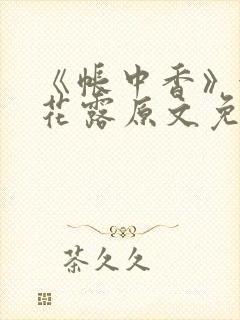 《帐中香》
花露原文免
茶久久